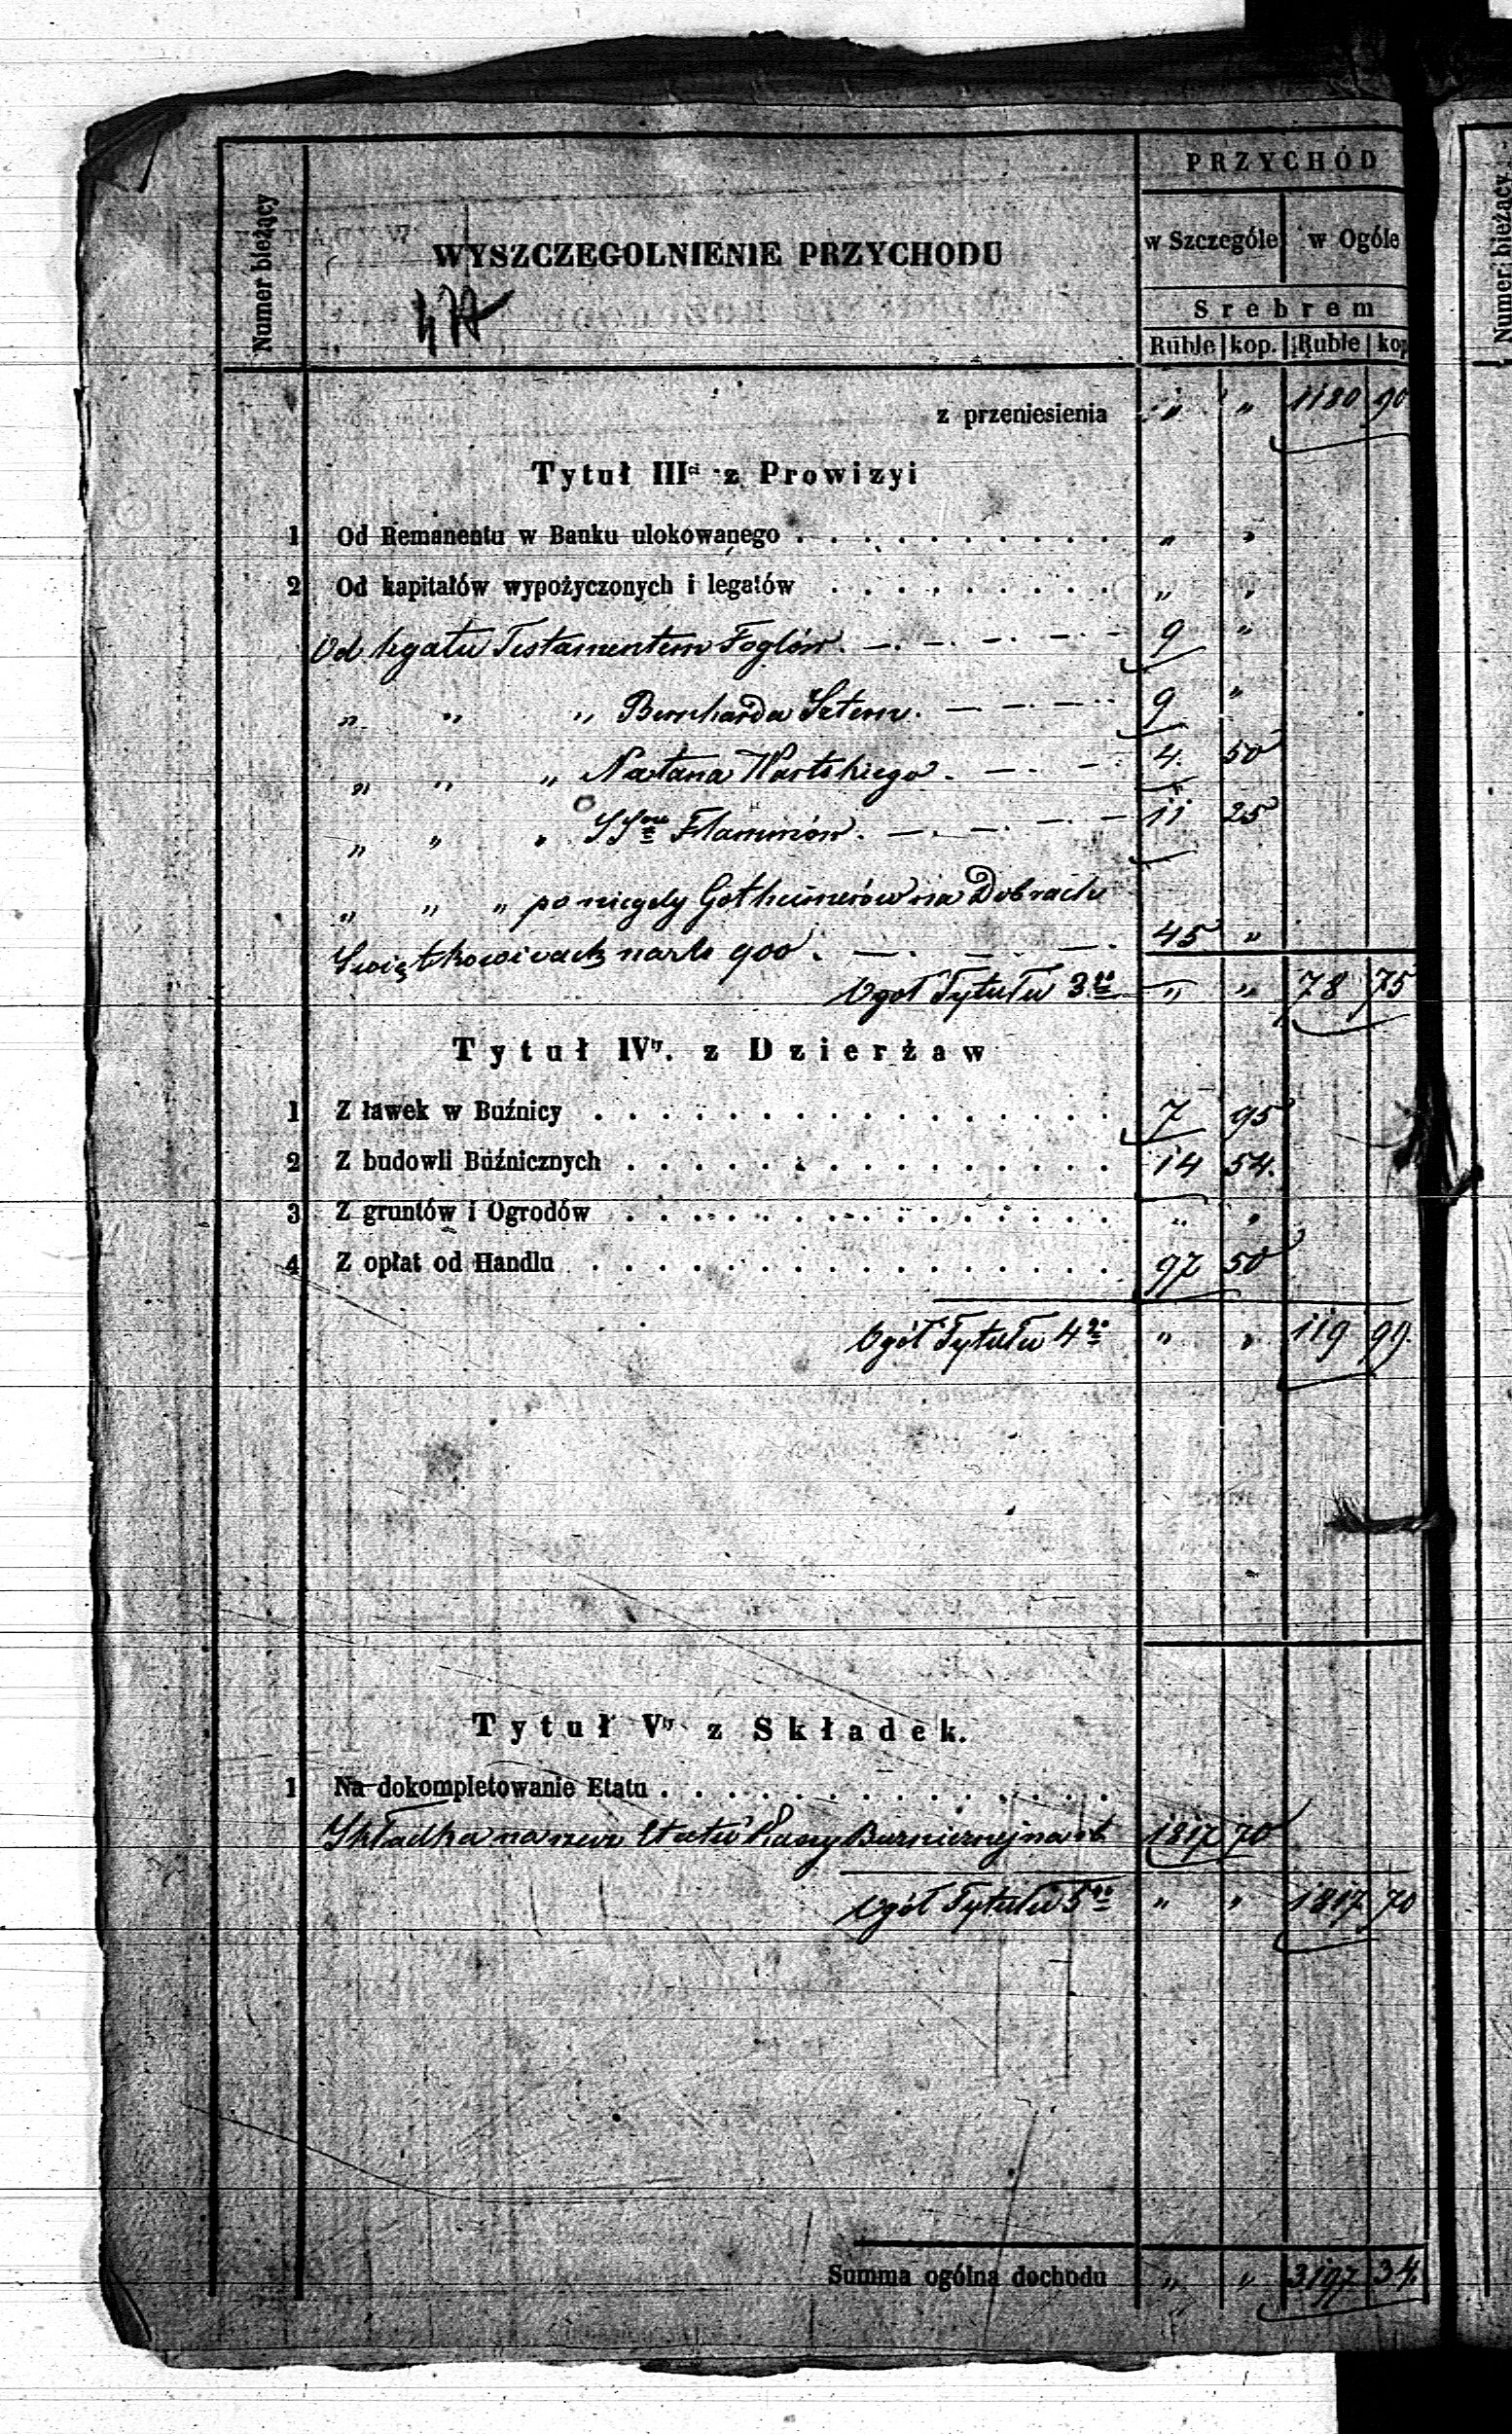 PRZYCHÓD
Numer bieżący
WYSZCZEGOLNIENIE PRZYCHODU
w Szczególe w Ogóle
Srebrem
Ruble kop. Ruble kop
z przeniesienia " " 1180 90
Tytuł IIIci z Prowizyi
1 Od Remanentu w Banku ulokowanego . . . . . . . . . . " "
2 Od kapitałów wypożyczonych i legatów . . . . . . . . . " "
Od legatu Testamentem Foglów. 9 "
" " " Bernharda Sztern. 9 "
" " " Natana Wartskiego. 4. 50
" " " SSrów Flammów. 11 25
" " " po niegdy Gotheimerów na Dobrach
Swiątkowicach na rs 900. 45 "
Ogół Tytułu 3go " " 78 75
Tytuł IVty. z Dzierżaw
1 Z ławek w Buźnicy . . . . . . . . . . . . . . . . 7 95
2 Z budowli Bóźnicznych . . . . . . . . . . . . . . . 14 54.
3 Z gruntów i Ogrodów . . . . . . . . . . . . . . . " "
4 Z opłat od Handlu . . . . . . . . . . . . . . . . 97 50
Ogół Tytułu 4go " " 119 99.
Tytuł Vty z Składek.
1 Na dokompletowanie Etatu . . . . . . . . . . . . . .
Składka na rzecz Etatu Kassy Buzniczney na r. 1817 70
Ogół Tytułu 5go " " 1817 70
Summa ogólna dochodu " " 3197 34.
Numer bieżący